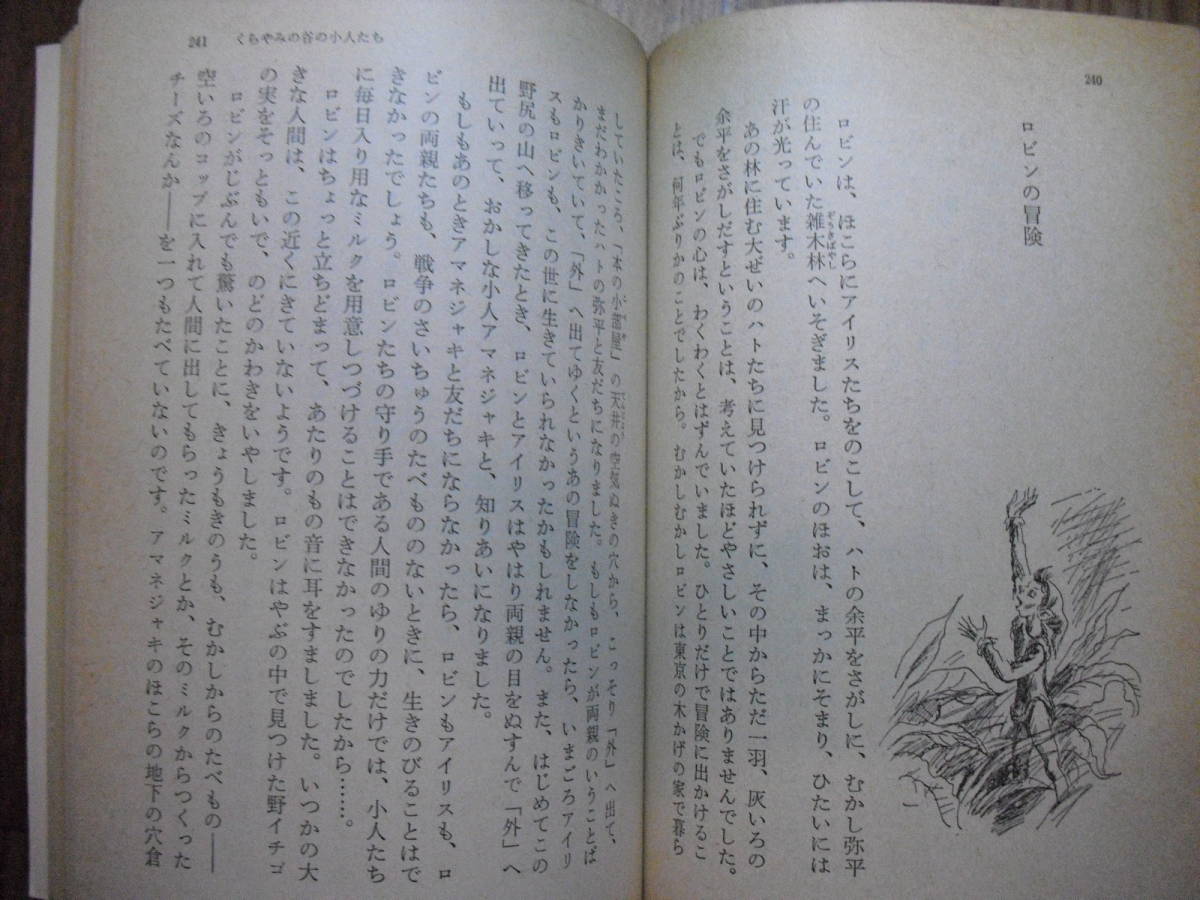 240
ロビンの冒険
ロビンは、ほこらにアイリスたちをのこして、ハトの余平をさがしに、むかし弥平
の住んでいた雑木林へいそぎました。ロビンのほおは、まっかにそまり、ひたいには
ぞうきばやし
汗が光っています。
あの林に住む大ぜいのハトたちに見つけられずに、その中からただ一羽、灰いろの
余平をさがしだすということは、考えていたほどやさしいことではありませんでした。
でもロビンの心は、わくわくとはずんでいました。ひとりだけで冒険に出かけるこ
とは、何年ぶりかのことでしたから。むかしむかしロビンは東京の木かげの家で暮ら
241 くらやみの谷の小人たち
していたころ、「本の小部屋」の天井の空気ぬきの穴から、こっそり「外」へ出て、
まだわかかったハトの弥平と友だちになりました。もしもロビンが両親のいうことば
かりきいていて、「外」へ出てゆくというあの冒険をしなかったら、いまごろアイリ
スもロビンも、この世に生きていられなかったかもしれません。また、はじめてこの
野尻の山へ移ってきたとき、ロビンとアイリスはやはり両親の目をぬすんで「外」へ
出ていって、おかしな小人アマネジャキと、知りあいになりました。
もしもあのときアマネジャキと友だちにならなかったら、ロビンもアイリスも、ロ
ビンの両親たちも、戦争のさいちゅうのたべもののないときに、生きのびることはで
きなかったでしょう。ロビンたちの守り手である人間のゆりの力だけでは、小人たち
に毎日入り用なミルクを用意しつづけることはできなかったのでしたから……。
ロビンはちょっと立ちどまって、あたりのもの音に耳をすましました。いつかの大
きな人間は、この近くにきていないようです。ロビンはやぶの中で見つけた野イチゴ
の実をそっともいで、のどのかわきをいやしました。
ロビンがじぶんでも驚いたことに、きょうもきのうも、むかしからのたべもの――
空いろのコップに入れて人間に出してもらったミルクとか、そのミルクからつくった
チーズなんか――を一つもたべていないのです。アマネジャキのほこらの地下の穴倉